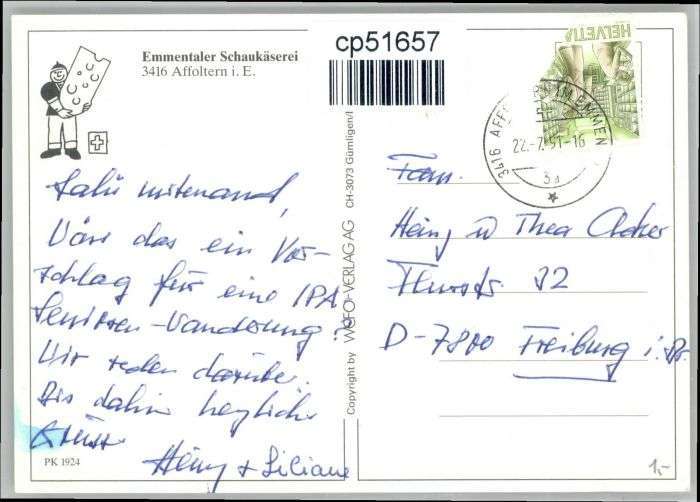 Emmentaler Schaukäserei
3416 Affoltern i. E.
cp51657
HELVETIA
3416 AFFOLTERN IM EMMENTAL
22.-7.91-16
3a
Salü mitenand,
Wäre das ein Vor-
schlag für eine IPA
Senioren-Wanderung?
Wir reden darüber.
Bis dahin herzliche
Grüsse
Heinz + Liliane
PK 1924
Copyright by WOFO-VERLAG AG CH-3073 Gümligen/
Fam.
Heinz u Thea Acker
32
D-7800 Freiburg i. Br.
1,-